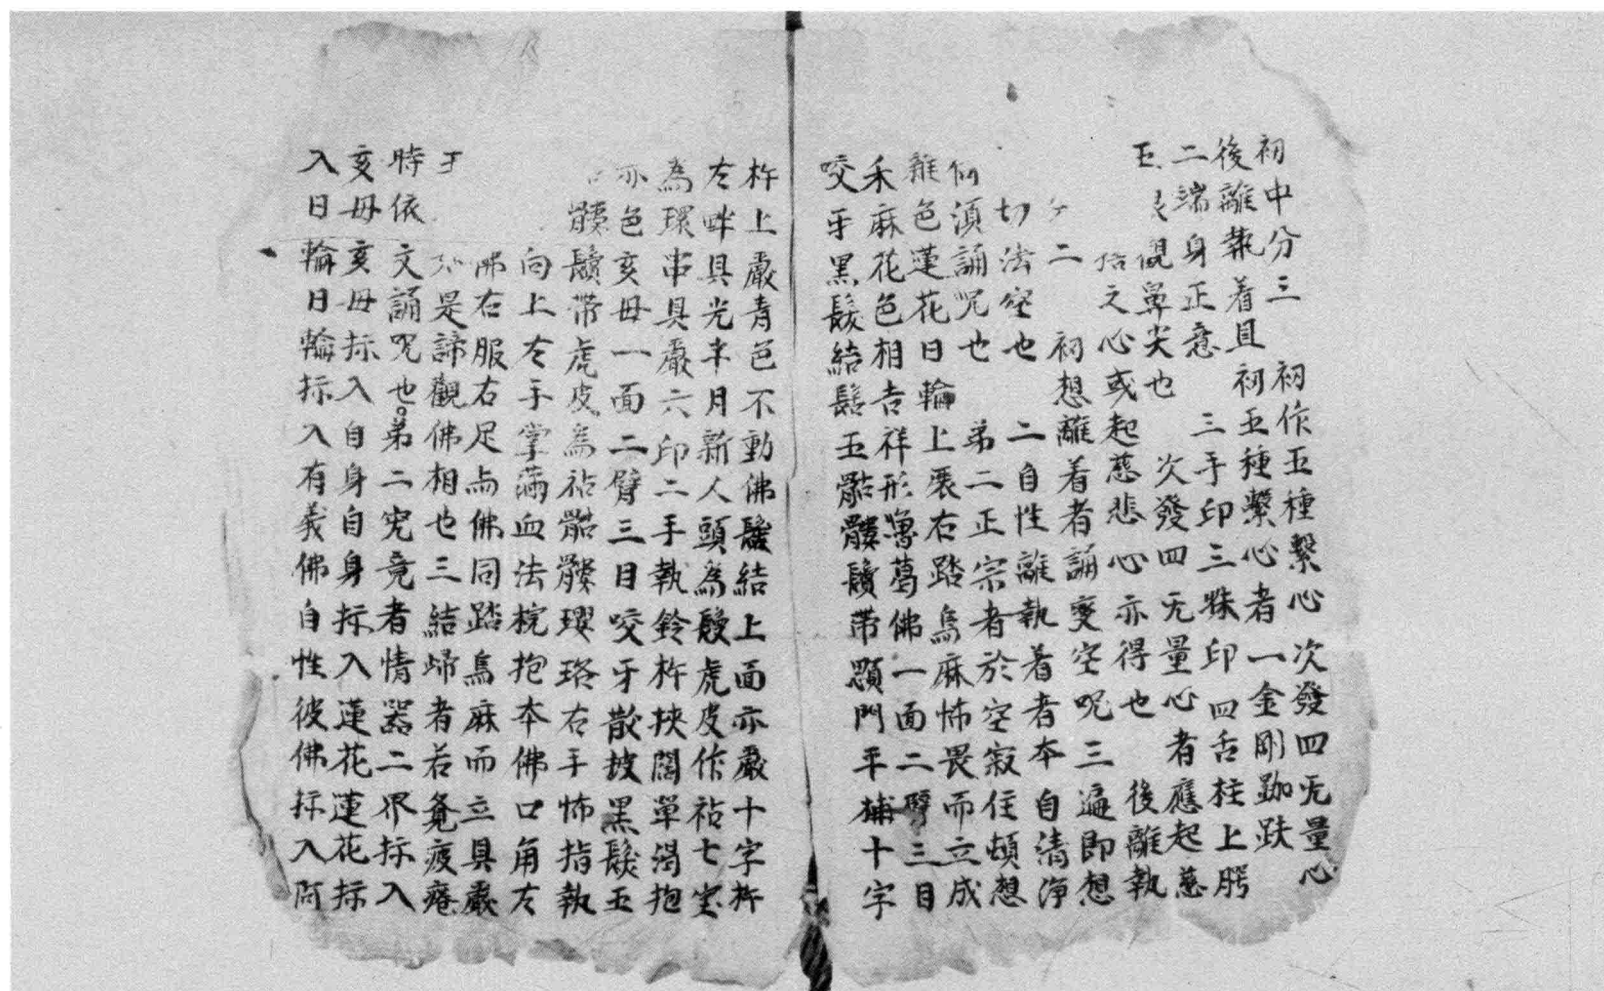 初中分三　初作五種繫心　次發四无量心
後離執着且初五種繫心者一金剛跏趺
二端身正意　三手印三昧印四舌柱上腭
五覷鼻尖也　次發四无量心者應起慈
之心或起慈悲心亦得也　後離執
二　初想離着者誦變空呪三遍即想
切法空也　二自性離執着者本自清淨
何須誦呪也　弟二正宗者於空寂住頓想
雜色蓮花日輪上展右踏烏麻怖畏而立成
禾麻花色相吉祥形嚕葛佛一面二臂三目
咬牙黑髮結髻五骷髏鬘帶顖門平桶十字
杵上嚴青色不動佛鬘結上面亦嚴十字杵
左畔具光半月新人頭為鬘虎皮作袩七寶
為環串具嚴六印二手執鈴杵挾闊單渴抱
亦色亥母一面二臂三目咬牙散披黑髮五
髏鬘帶虎皮為袩骷髏瓔珞右手怖指執
向上左手掌滿血法椀抱本佛口角左
佛右服右足与佛同踏烏麻而立具嚴
是諦觀佛相也三結歸者若覺疲倦
時依文誦呪也弟二究竟者情器二界摽入
亥母亥母摽入自身自身摽入蓮花蓮花摽
入日輪日輪摽入有義佛自性彼佛摽入阿